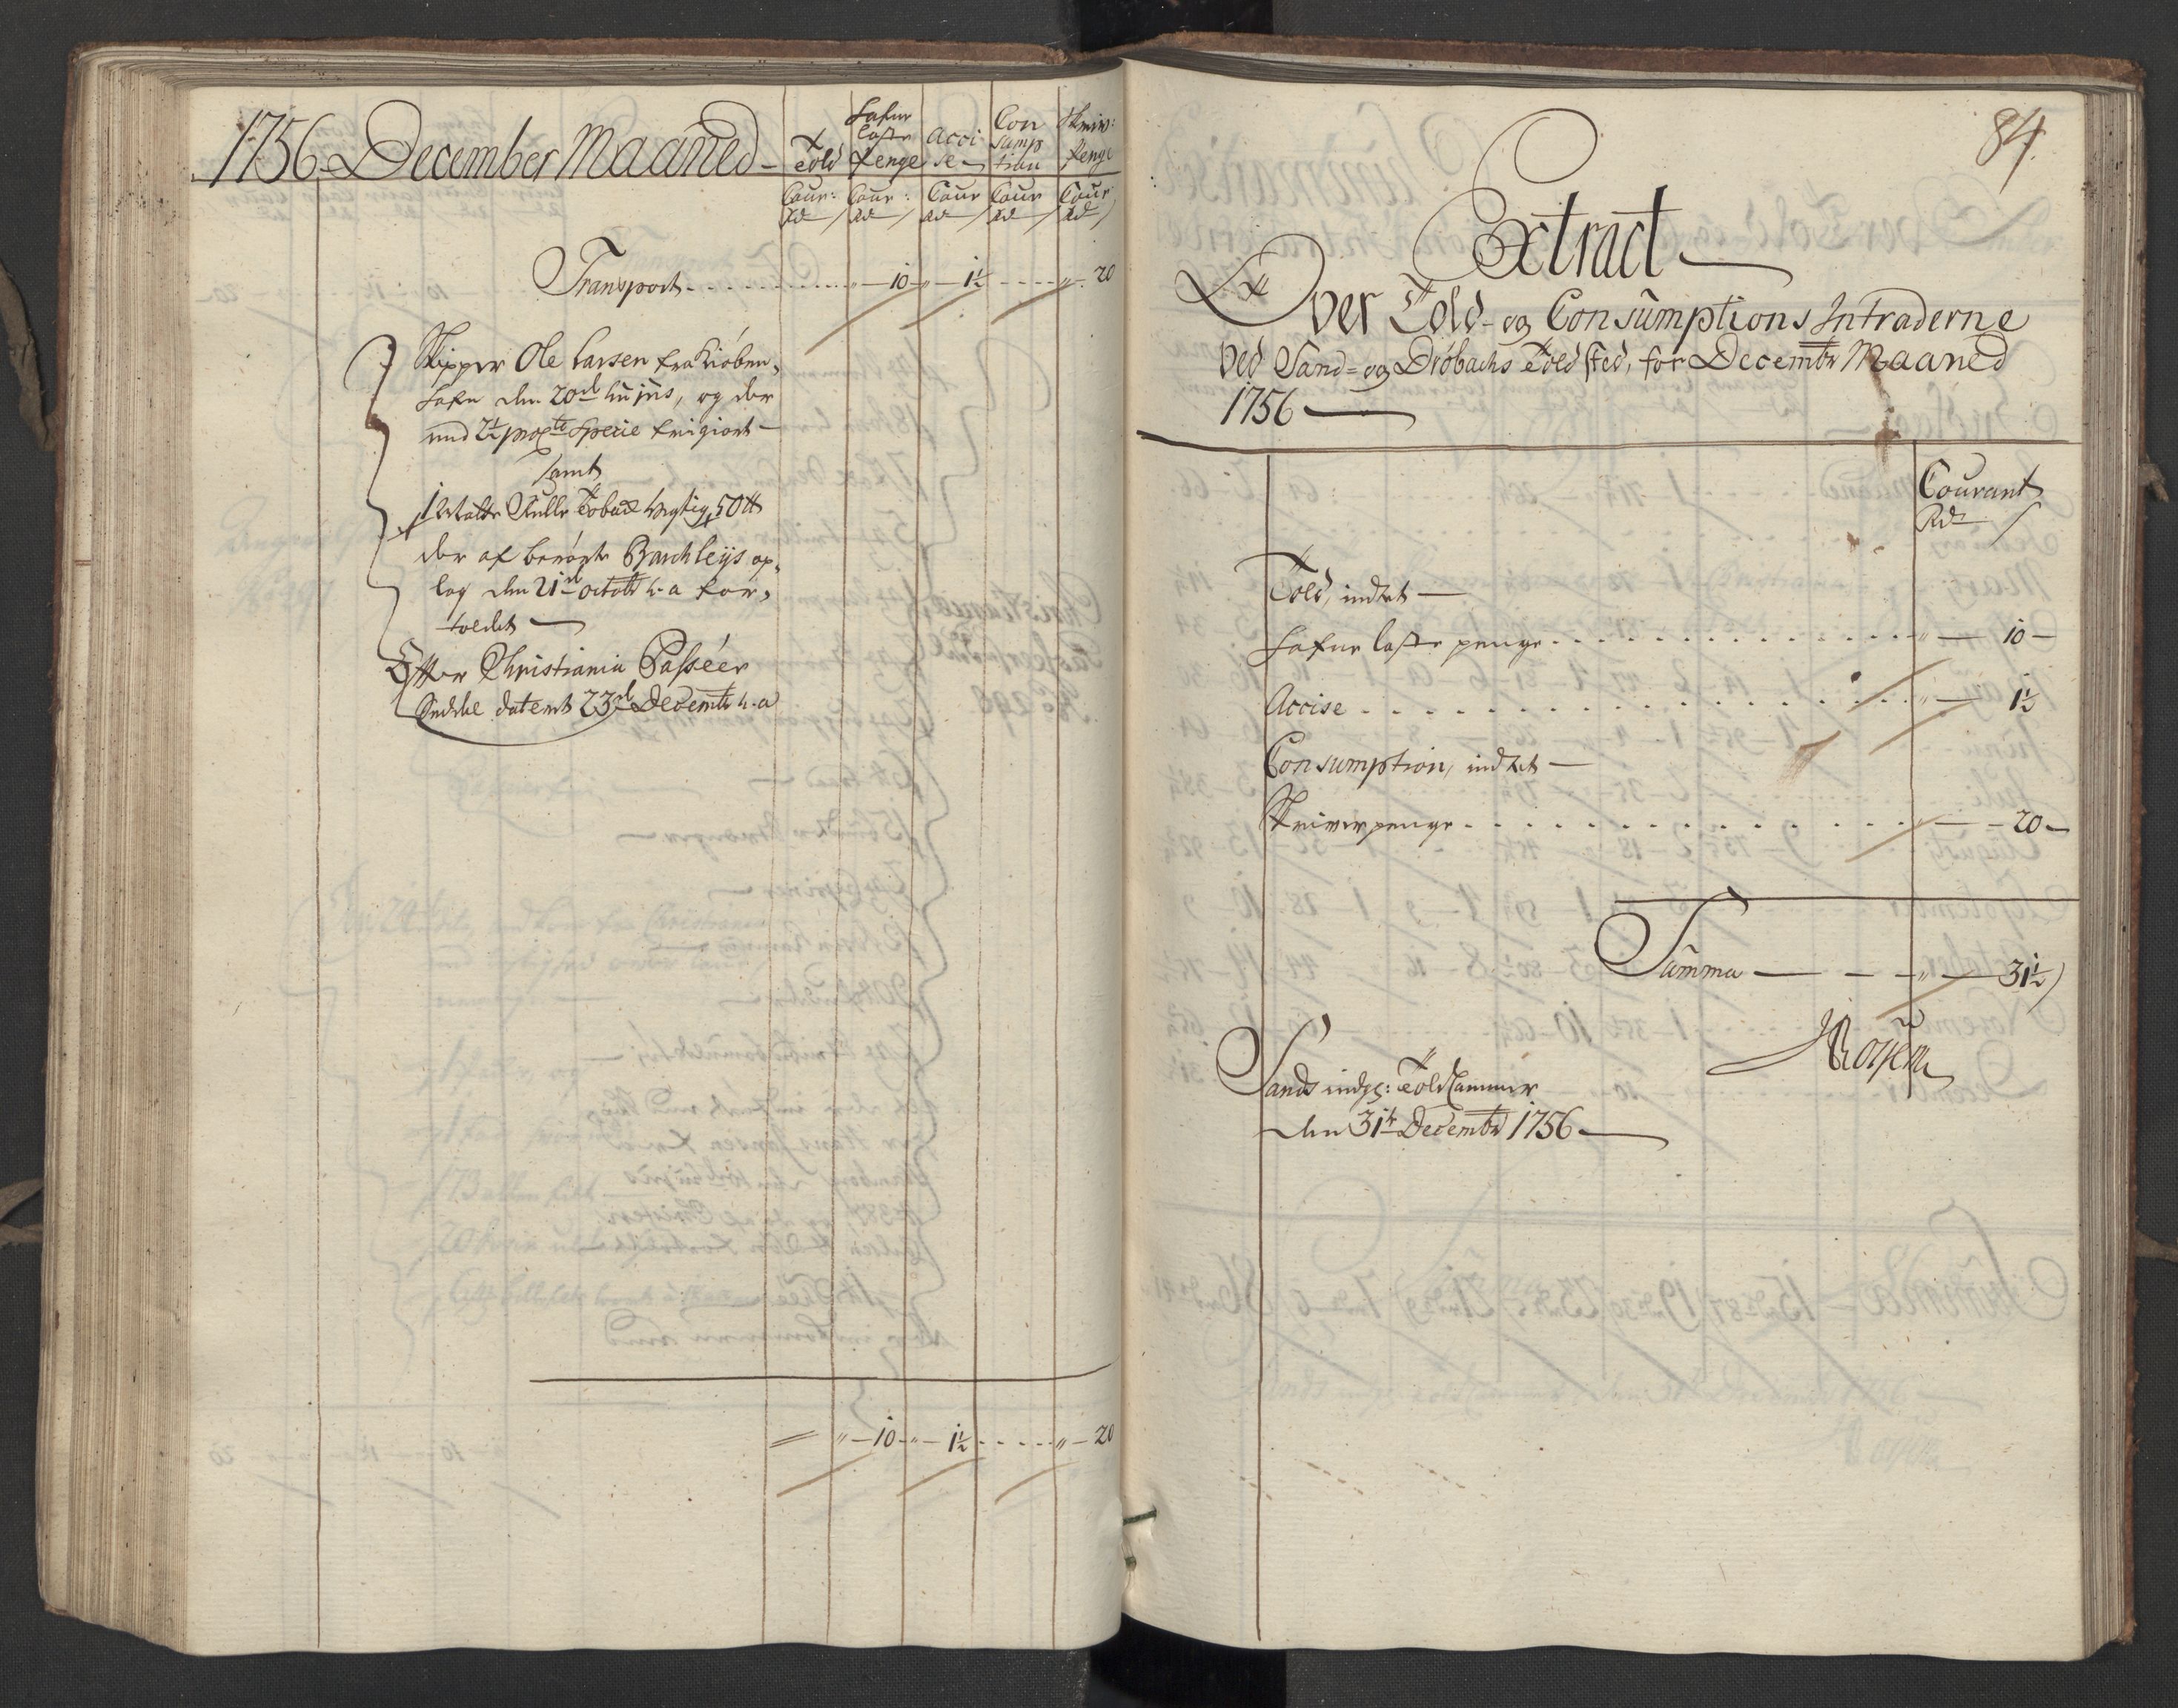 1756 December Maaned
Told
Hafne
laste
Penge
Acci
se
Con
sump
tion
Skriv:
Penge
Cour: Cour: Cour Cour Cour
Rd Rd Rd Rd Rd
Transport " 10 " 1½ " 20
Skipper Ole Larsen fra Kiøben,
hafn den 20de hujus, og der
med 2½ proCto Specie frigiort
samt
Rulle Toback vegtig 50 tt
der af Barchleijs op,
lag den 21de octobr h: a for,
toldet
Efter Christiania Passéer
Seddel datert 23de Decembr h: a
" 10 " 1½ " 20
84.
Extract
Over Told- og Consumptions Intraderne
ved Sand- og Drøbachs Toldsted, for Decembr Maaned
1756
Courant
Rdr
Told, indtet
Hafne laste penge " 10
Accise " 1½
Consumption, indtet
Skriverpenge " 20
Summa " 31½
Sands Told Cammer
den 31te Decembr 1756